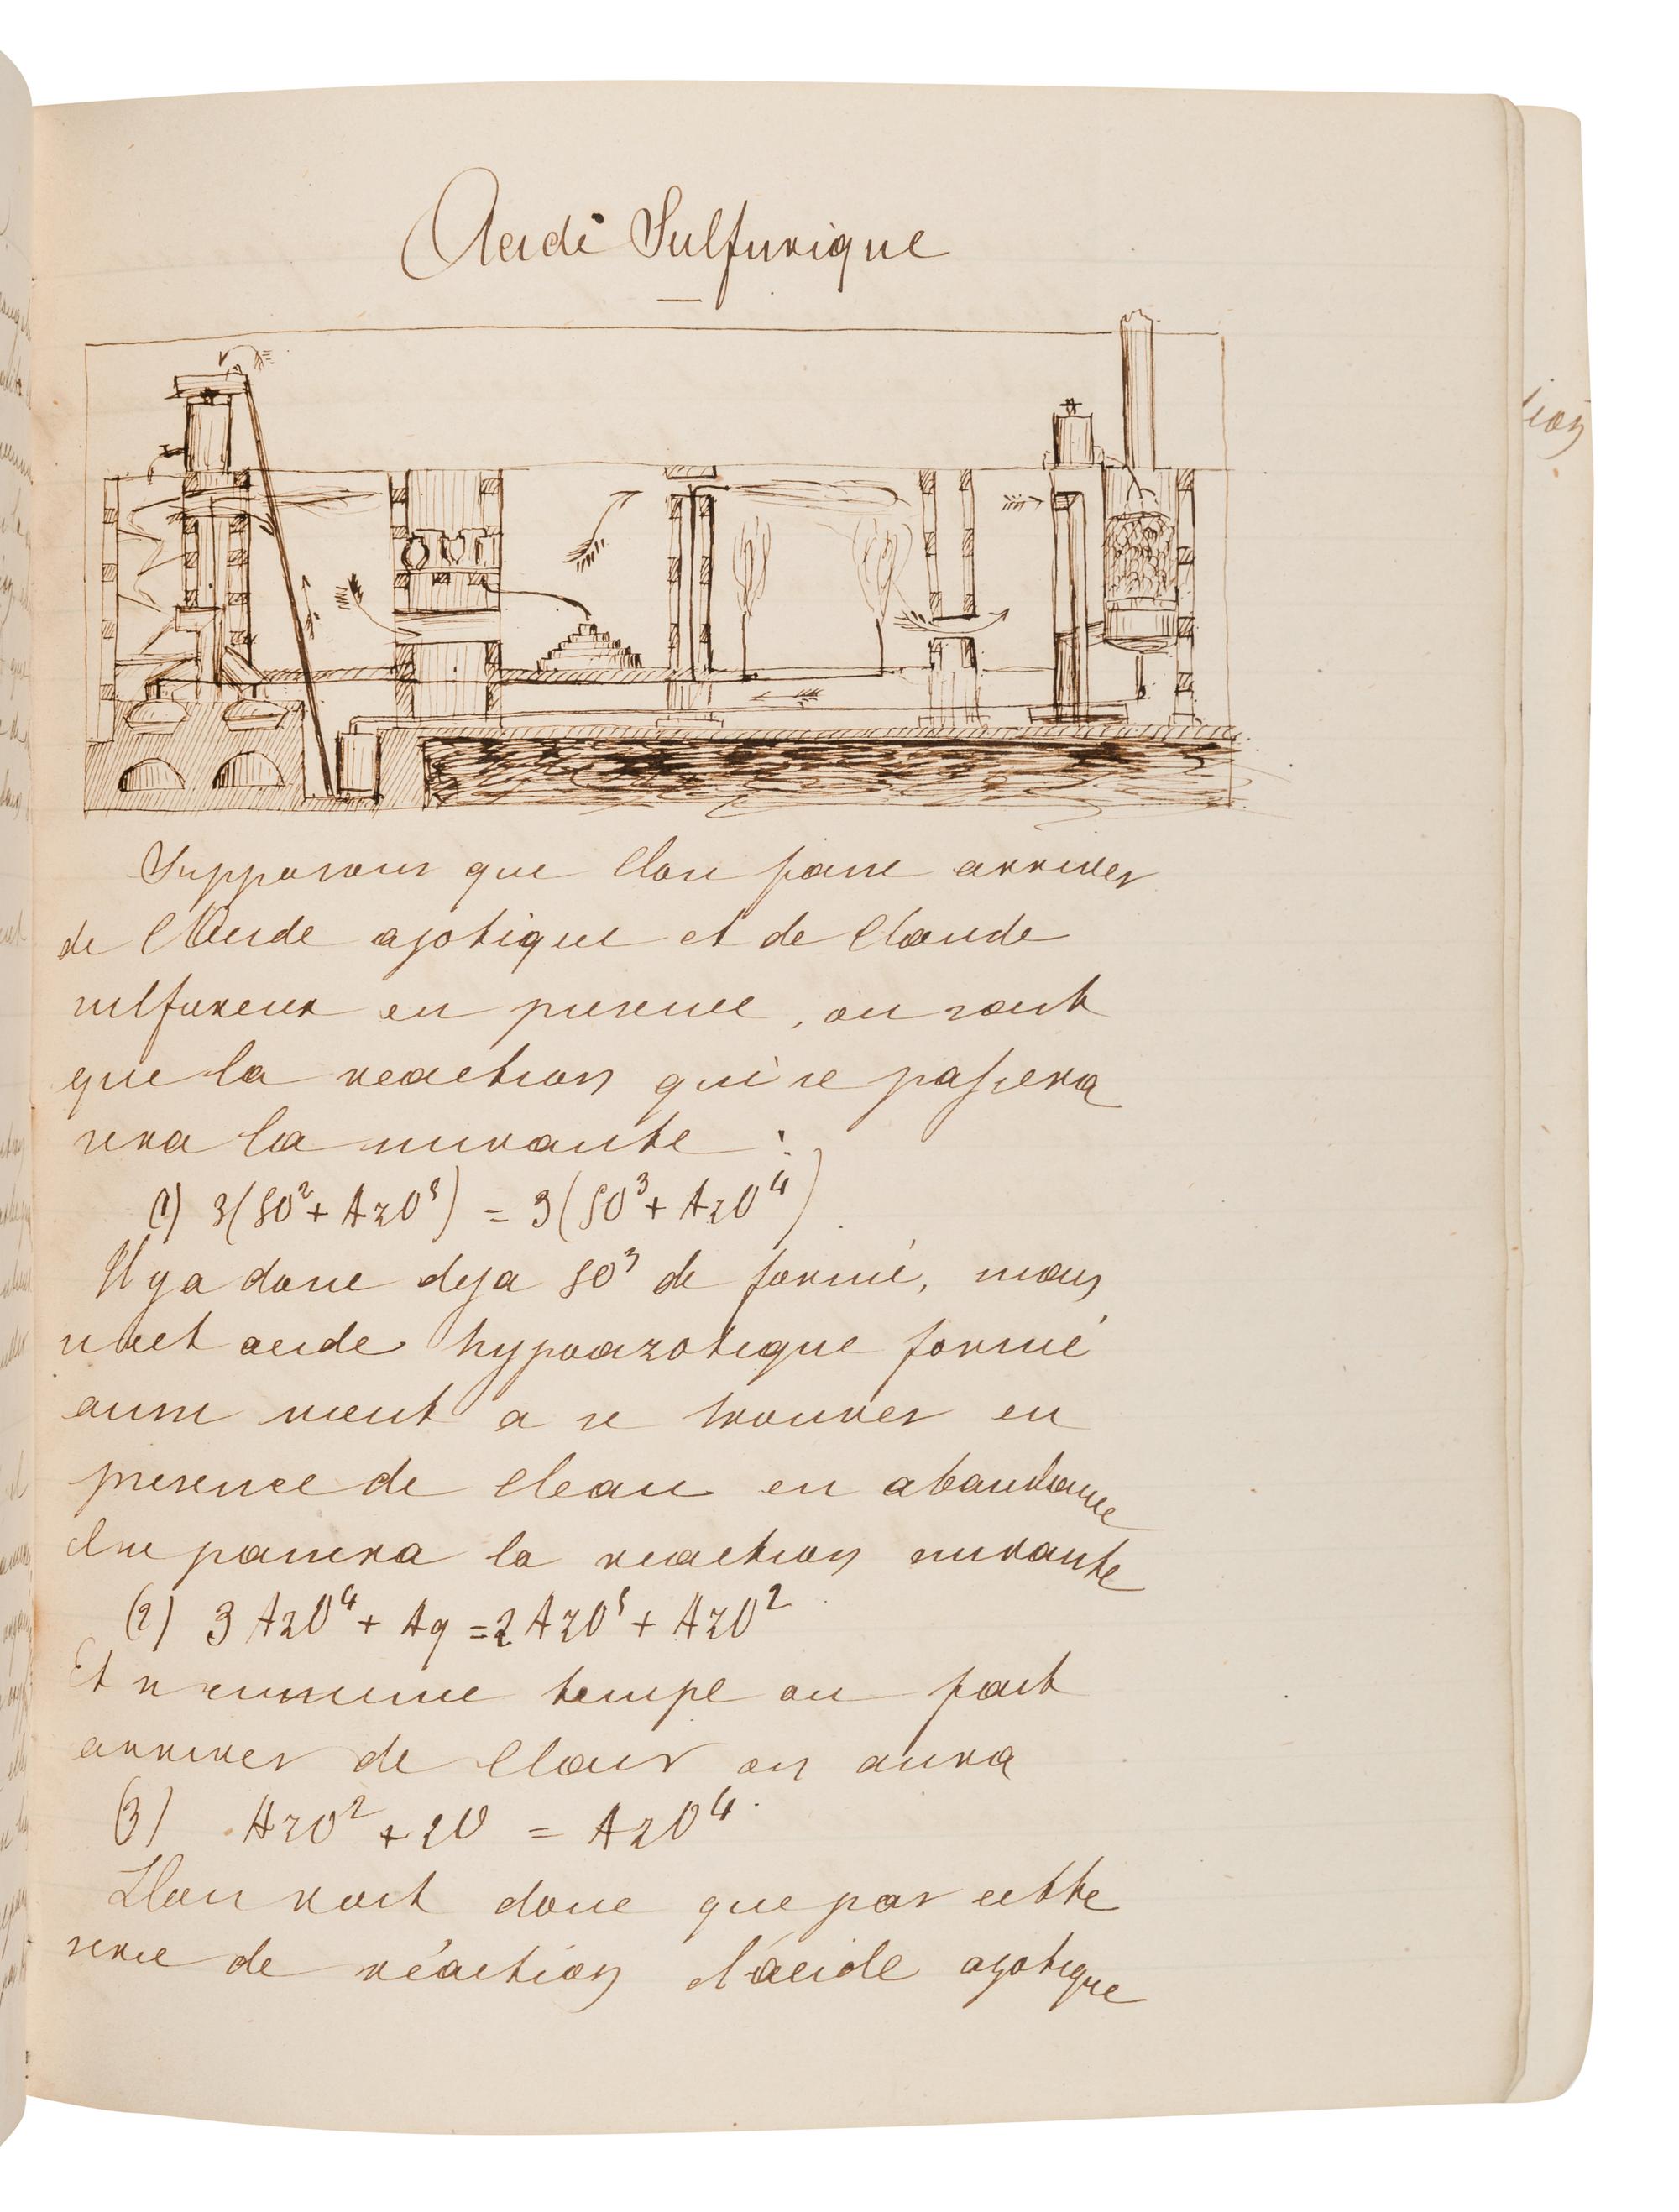 Acide Sulfurique
Supposons que l'on fasse arriver
de l'Acide azotique et de l'acide
sulfureux en presence, on sait
que la reaction qui se passera
sera la suivante :
(1) 3(SO² + AzO⁵) = 3(SO³ + AzO⁴)
Il y a donc deja SO³ de formé, mais
acide hypoazotique formé
aussi vient a se trouver en
presence de l'eau en abandance
il se passera la reaction suivante
(2) 3 AzO⁴ + Aq = 2 AzO⁵ + AzO²
Et si en meme temps on fait
arriver de l'air on aura
(3) AzO² + 2O = AzO⁴.
L'on voit donc que par cette
serie de réaction l'acide azotique